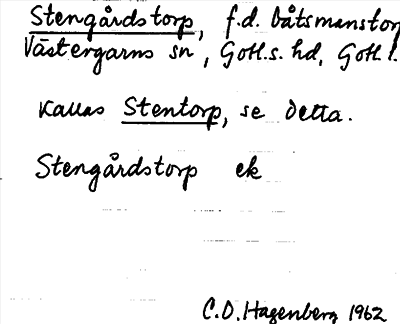 Stengårdstorp, f.d. båtsmanstorp
Västergarns sn, Gotl.s. hd, Gotl. l.
Kallas Stentorp, se detta.
Stengårdstorp ek
C.O. Hagenberg 1962